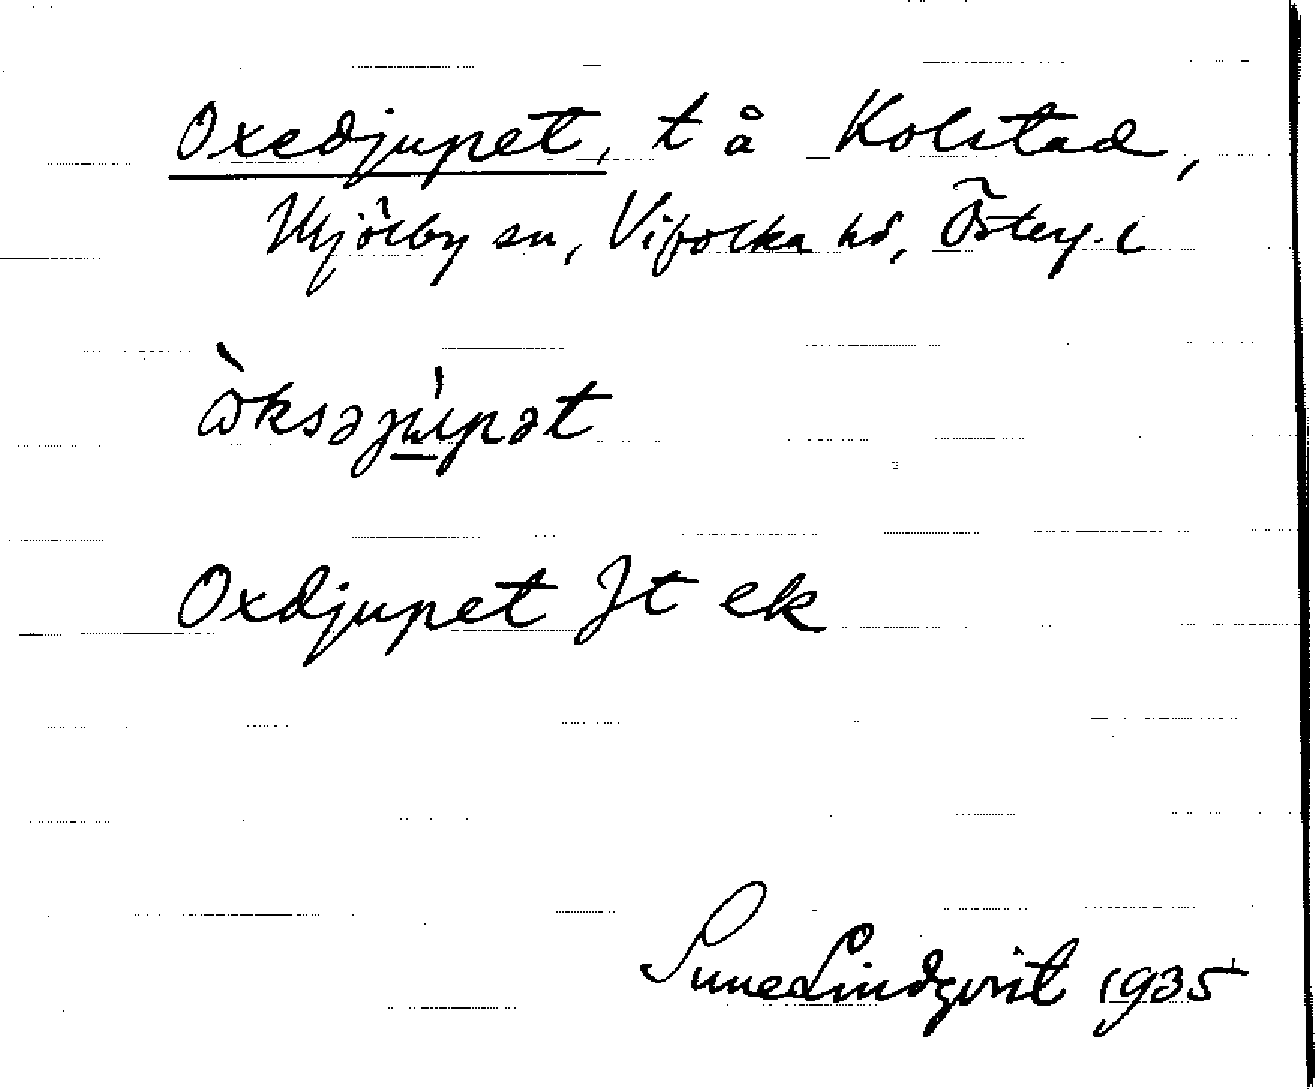 Oxedjupet, t å Kolstad,
Mjölby sn, Vifolka hd, Österg. l
ɷ̀ksəjùpət
Oxdjupet Jt ek
Sune Lindqvist 1935